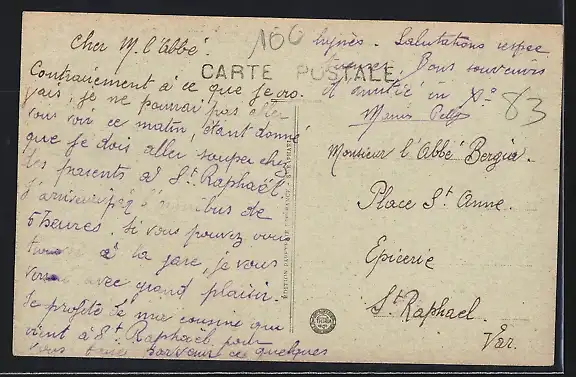 Cher M. l'Abbé.
Contrairement à ce que je cro-
yais, je ne pourrai pas aller
vous voir ce matin, étant donné
que je dois aller souper chez
des parents à St. Raphaël.
J'arriverai par l'omnibus de
5 heures. Si vous pouvez vous
à la gare, je vous
verrai avec grand plaisir.
Je profite de ma cousine qui
vient à St. Raphaël pour
vous faire parvenir ces quelques
lignes. Salutations respec-
tueuses. Bons souvenirs
et amitié en X°
100
83
CARTE POSTALE
Monsieur l'Abbé Bergia.
Place St. Anne.
Epicerie
St. Raphael.
Var.